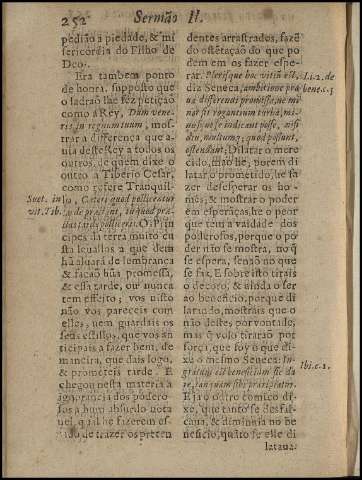 252 Sermão II.
pedião a piedade, & mi
sericordia do Filho de
Deos.
Era tambem ponto
de honra, supposto que
o ladrão lhe fez petição
como a Rey, Dum vene-
ris in regnum tuum, mos-
trar a differença que a-
uia deste Rey a todos os
outros, de quem dixe o
outro a Tiberio Cesar,
como refere Tranquil-
Suet. in
vit. Tib.
lo, Cæteri quod pollicentur
tardè præstant, tu quod præ-
stas tardè polliceris. O Prin
cipes da terra muito cu
sta leualos a que dem
hũ aluará de lembrança
& fação hũa promessa,
& essa tarde, ou nunca
tem effeito; vos nisto
não vos pareceis com
elles, nem guardais os
seus estillos, que vos an
ticipais a fazer bem, de
maneira, que dais logo,
& prometeis tarde. E
chegou nesta materia a
ignorancia dos podero-
sos a hum absurdo nota
uel, qual he fazerem es-
tado de trazer os preten
dentes arrastados, fazẽ
do ostẽtação do que po
dem em os fazer espe-
rar. Plerisque hoc vitiũ est,
diz Seneca, ambitione pra
l.1.2.de
bene.c.3
ua differendi promissa, ne mi
nor sit rogantium turba; mi-
nosque se iudicant posse, nisi
diu, multumq; quod possunt,
ostendant; Dilatar o mere
cido, mao he, porem di
latar o prometido, he fa
zer desesperar os ho-
mẽs; & mostrar o poder
em esperãças, he o peor
que tem a vaidade dos
poderosos, porque o po
der não se mostra, no q̃
se espera, senão no que
se faz. E sobre isto tirais
o decoro, & ainda o ser
ao beneficio, porque di
latando, mostrais que o
não deste, por vontade,
mas q̃ volo tirarão por
força, que foy o que di-
xe o mesmo Seneca: In-
gratum est beneficium sic da
Ibi.c.1.
re, tanquam sibi præriptatur.
E ja o outro comico di-
xe, que tanto se desfal-
caua, & diminuia no be
neficio, quãto se elle di
lataua.